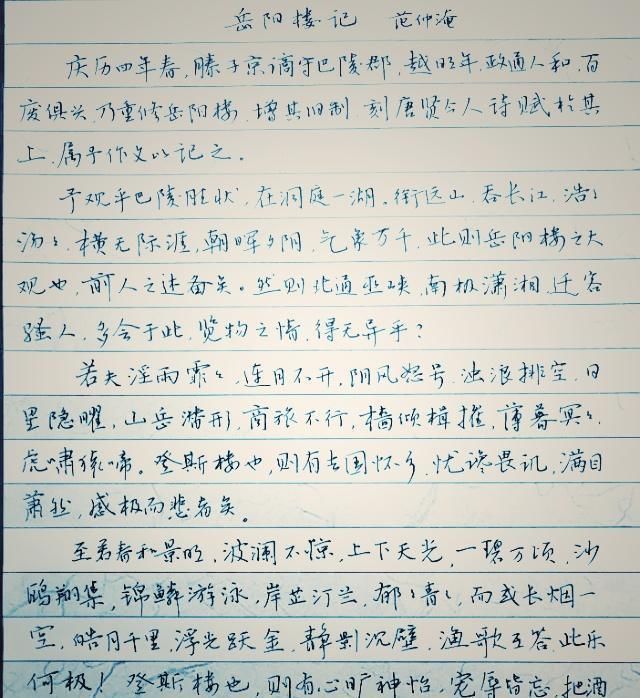 岳阳楼记 范仲淹
庆历四年春,滕子京谪守巴陵郡,越明年,政通人和,百
废俱兴,乃重修岳阳楼,增其旧制,刻唐贤今人诗赋于其
上,属予作文以记之。
予观乎巴陵胜状,在洞庭一湖。衔远山,吞长江,浩々
汤々,横无际涯,朝晖夕阴,气象万千,此则岳阳楼之大
观也,前人之述备矣。然则北通巫峡,南极潇湘,迁客
骚人,多会于此,览物之情,得无异乎?
若夫淫雨霏々,连月不开,阴风怒号,浊浪排空,日
星隐曜,山岳潜形,商旅不行,樯倾楫摧,薄暮冥々,
虎啸猿啼。登斯楼也,则有去国怀乡,忧谗畏讥,满目
萧然,感极而悲者矣。
至若春和景明,波澜不惊,上下天光,一碧万顷,沙
鸥翔集,锦鳞游泳,岸芷汀兰,郁々青々,而或长烟一
空,皓月千里,浮光跃金,静影沉璧,渔歌互答,此乐
何极!登斯楼也,则有心旷神怡,宠辱皆忘,把酒